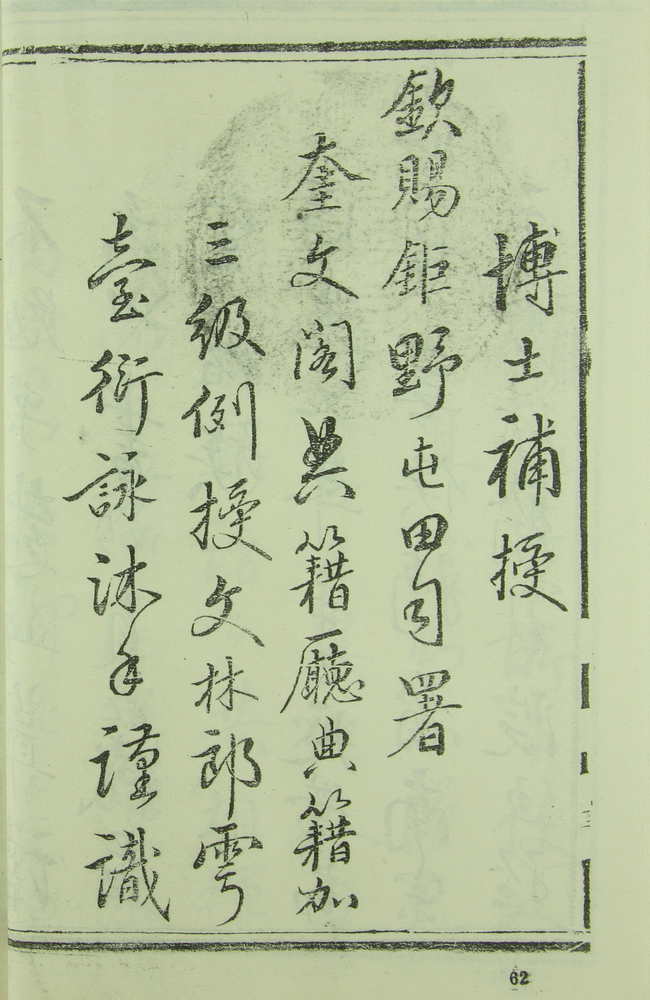 博士補授
欽賜鉅野屯田司署
奎文閣典籍廳典籍加
三級例授文林郎雩
臺衍詠沐手謹識
62